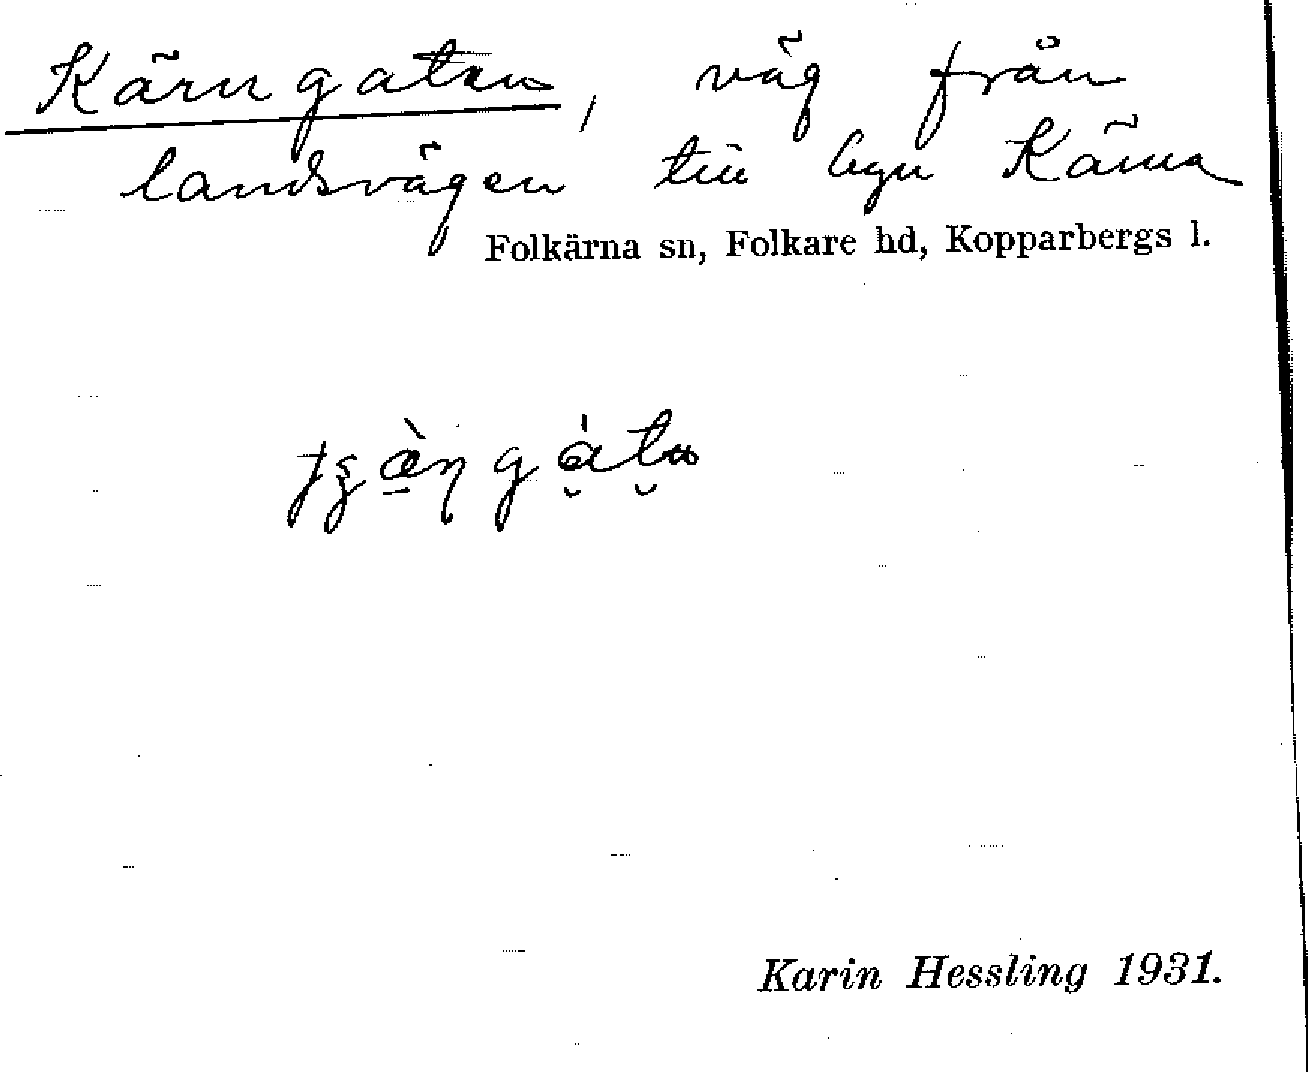 Kärngatan, väg från
landsvägen till byn Kärna
Folkärna sn, Folkare hd, Kopparbergs l.
Karin Hessling 1931.